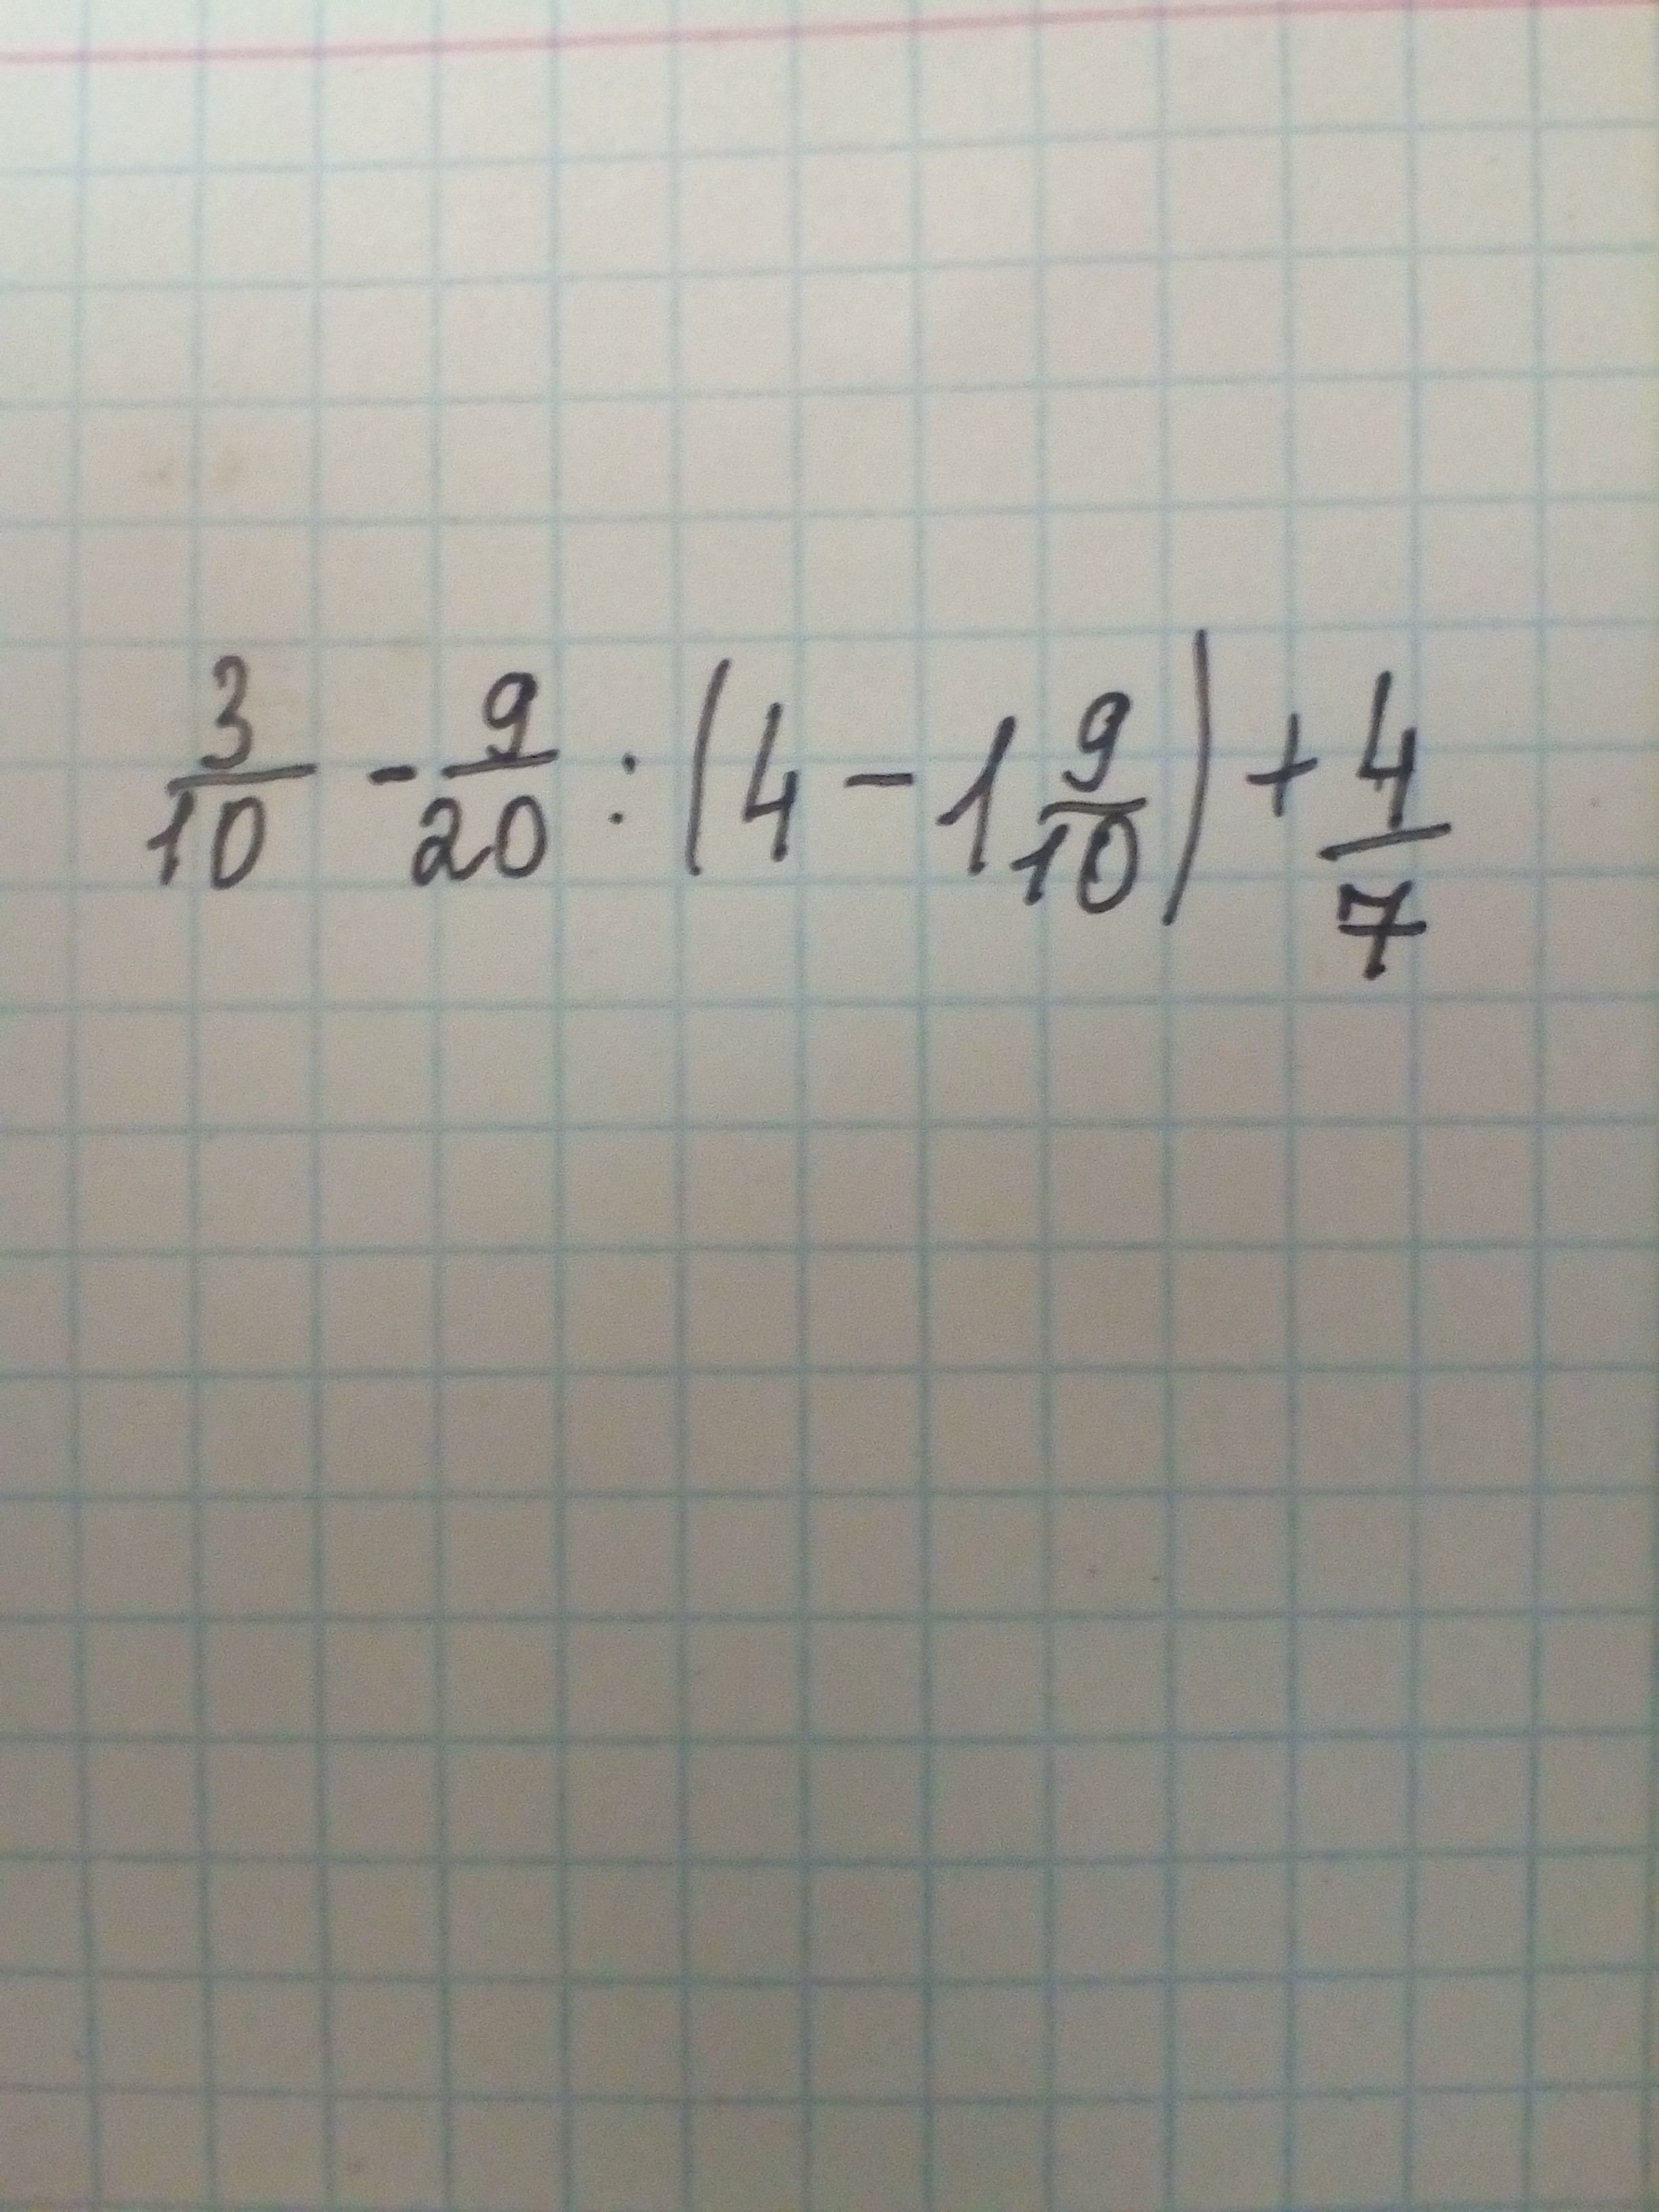 3/10 - 9/20 : (4 - 1 9/10) + 4/7